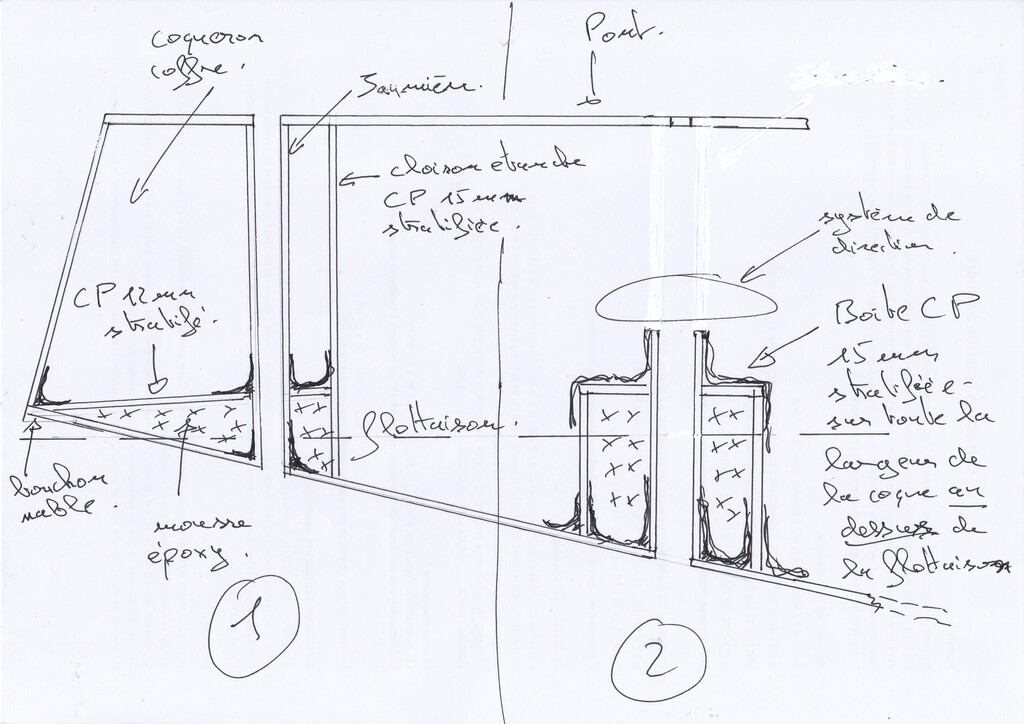 coqueron
coffre.
Jaumière.
Pont.
cloison étanche
CP 15 mm
stratifiée.
système de
direction.
CP 12 mm
stratifé.
Boite CP
15 mm
stratifiée
sur toute la
largeur de
la coque au
dessus de
la flottaison
flottaison.
bouchon
nable.
mousse
époxy.
1
2